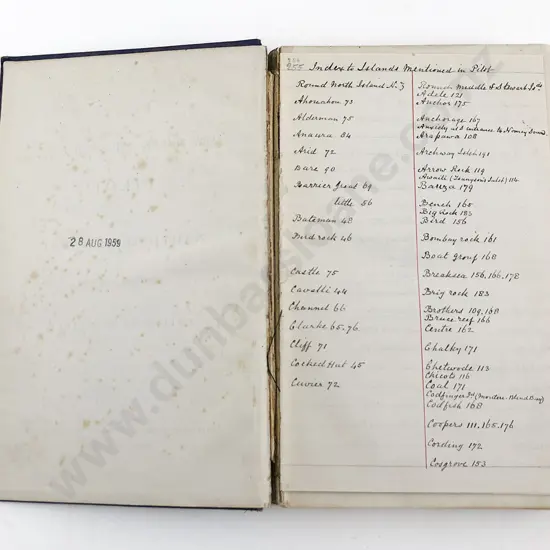 28 AUG 1959
Index to Islands Mentioned in Pilot
Round North Island N.Z
Ahouahou 73
Alderman 75
Anaura 84
Arid 72
Bare 90
Barrier Great 69
little 56
Bateman 48
Bird rock 46
Castle 75
Cavalli 44
Channel 66
Clarke 65.76
Cliff 71
Cocked Hat 45
Cuvier 72
Round Middle & Stewart Isds
Adele 121
Anchor 175
Anchorage 167
Anxiety at S entrance to
Arapawa 108
Archway Islets 191
Arrow Rock 119
Awaiti (Tennyson's Inlet) 114
Bauza 179
Bench 160
Big Rock 183
Bird 156
Bombay rock 161
Boat group 168
Breaksea 156, 166, 178
Brig rock 183
Brothers 109, 168
Bruce reef 166
Centre 162
Chalky 171
Chetwode 113
Chicots 116
Coal 171
Codfinger Pt (
Codfish 168
Coopers 111, 165, 176
Cording 172
Cosgrove 153
www.dunbarsloane.co.nz